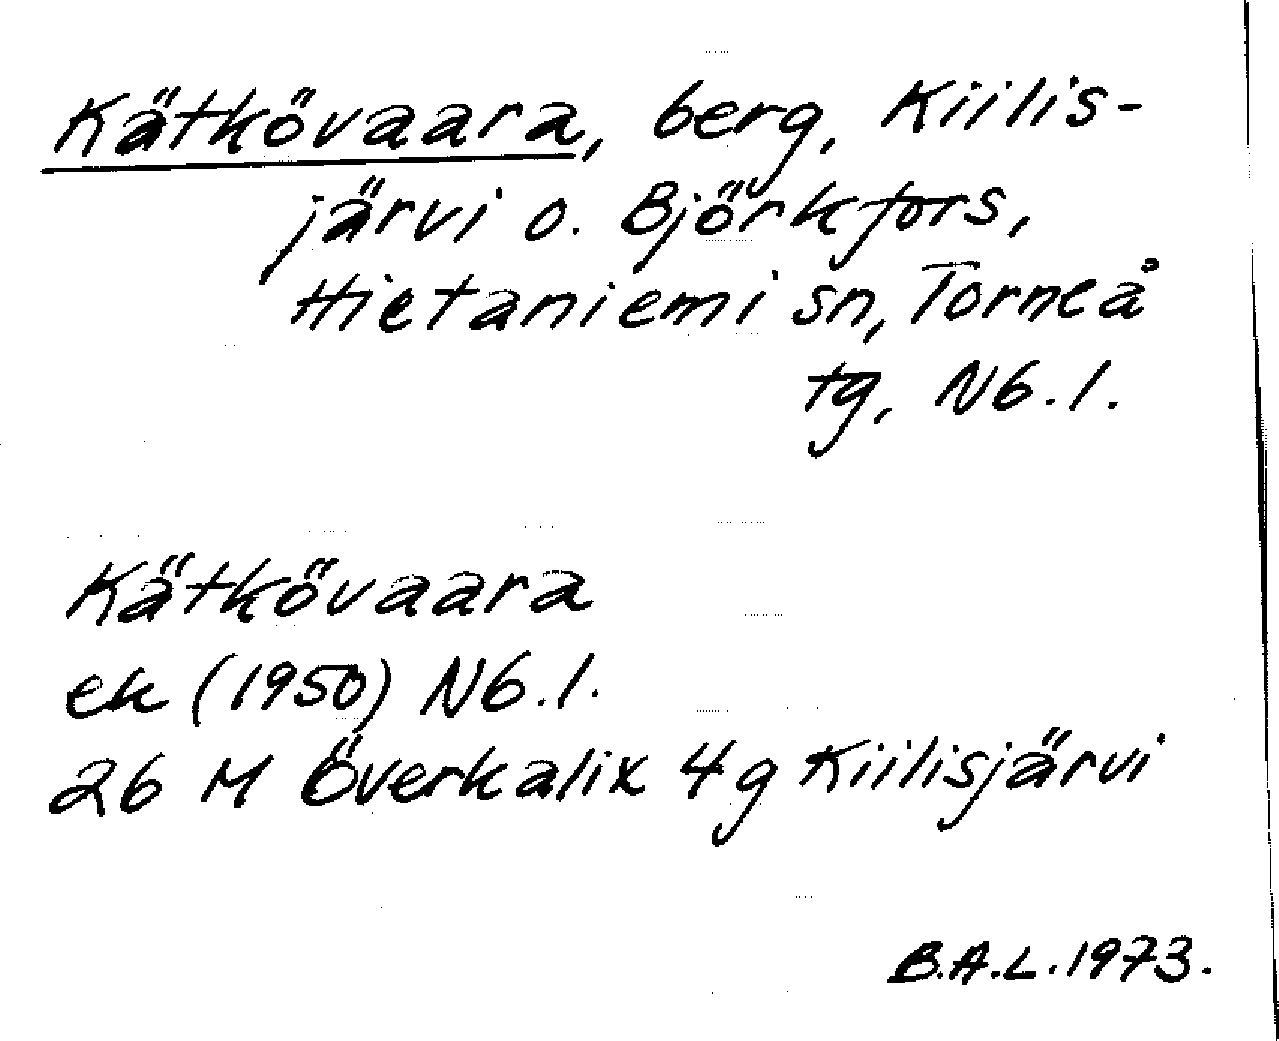 Kätkövaara, berg, Kiilis-
järvi o. Björkfors,
Hietaniemi sn, Torneå
tg, N6.1.
Kätkövaara
ek (1950) N6.1.
26 M Överkalix 4g Kiilisjärvi
B.A.L. 1973.